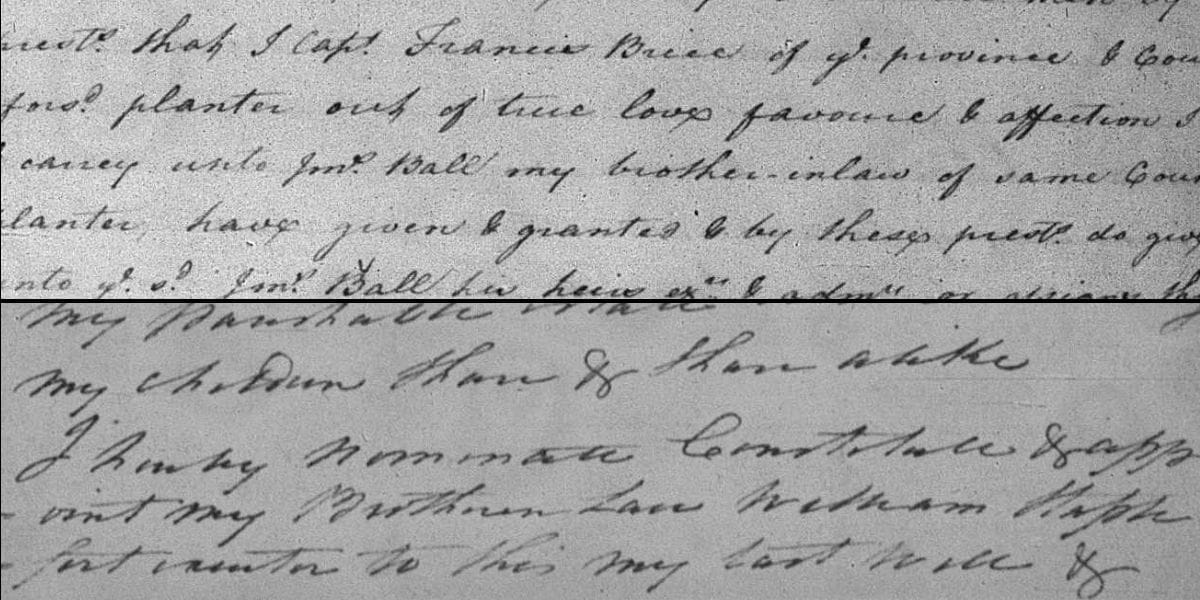 prests. that I Capt. Francis Brice of ye. province & Cou
forsd. planter out of true love favour & affection I
carrey unto Jno. Ball my brother-inlaw of same Coun
planter, have given & granted & by these prests. do give
unto ye. sd. Jno. Ball his heirs exrs & admrs or assigns
my
my children Share & Share alike
I hereby nominate Constitute & app
- oint my Brotherin Law William Staple
- fort executor to this my last Will &